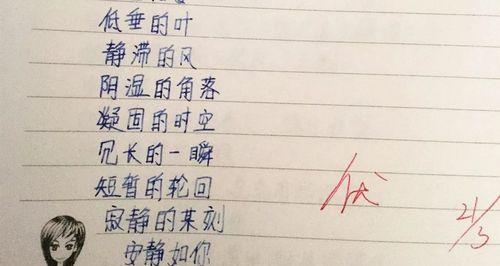 低垂的叶
静滞的风
阴湿的角落
凝固的时空
冗长的一瞬
短暂的轮回
寂静的某刻
安静如你
伏
21/3